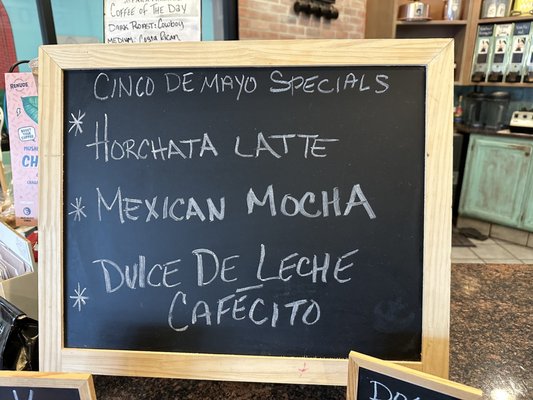 Coffee of the Day
Dark Roast: Cowboy
Medium: Costa Rican
Cinco de Mayo Specials
* Horchata Latte
* Mexican Mocha
* Dulce De Leche
Cafécito